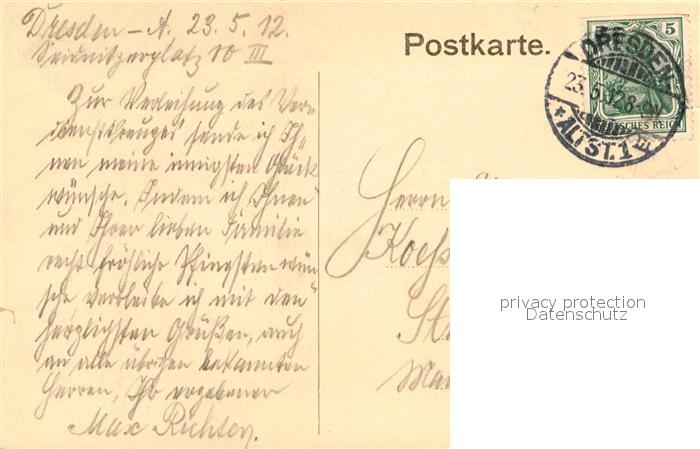 Dresden – A. 23. 5. 12.
Seidnitzerplatz 10 III
Postkarte.
Zur Verleihung des Ver=
dienstkreuzes sende ich Ih=
nen meine innigsten Glück
wünsche. Indem ich Ihnen
und Ihrer lieben Familie
recht fröhliche Pfingsten wün
sche verbleibe ich mit den
herzlichsten Grüßen, auch
an alle übrigen bekannten
Herren, Ihr ergebener
Max Richter.
Herrn
5
DEUTSCHES REICH
DRESDEN
23.5.12.8
*ALTST. 1 E
privacy protection
Datenschutz